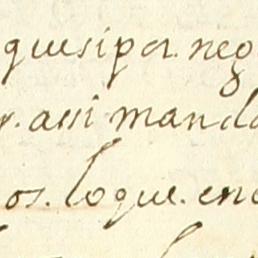 quesipor. neg
r. assi mand
os. loque. en